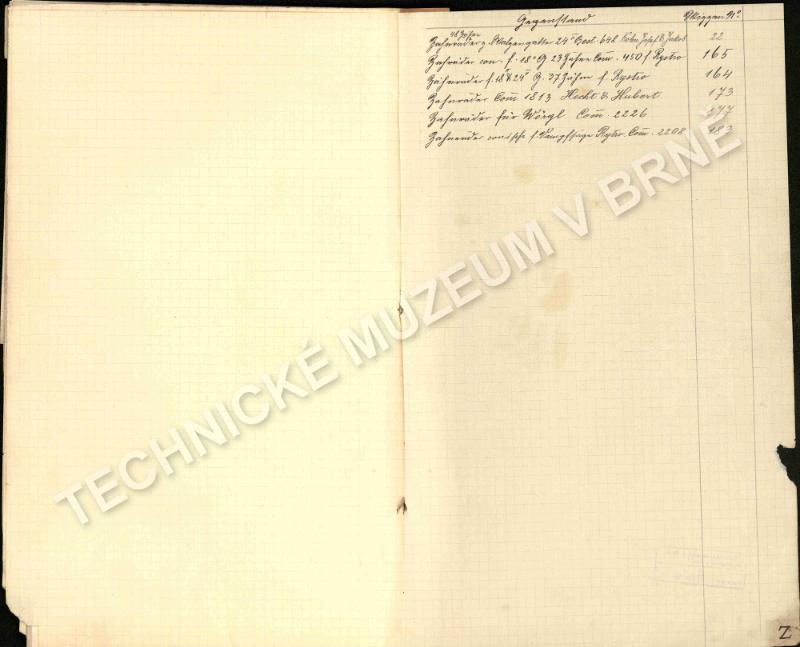 Gegenstand Skizzen No
48 Zähne
Zahnräder z. Walzengatter 24" Best. 642 Kohn Josef & Jakob 22
Zahnräder con. f. 18" G 23 Zähne Com. 450 f. Regtro 165
Zahnräder f. 18" & 24" G. 37 Zähne f. 164
Zahnräder Com 1813 Hecht & Hubert 173
Zahnräder für Wörgl Com. 2226 177
Zahnräder conische f. Com. 2208 183
TECHNICKÉ MUZEUM V BRNĚ
Z